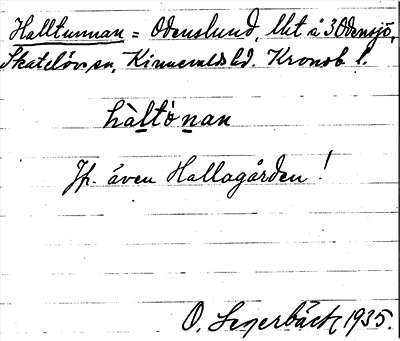 Halltunnan = Odenslund, lht å 3 Odensjö,
Skatelövs sn, Kinnevalds hd. Kronob. l.
hàltònan
Jfr. även Hallagården!
O. Segerbäck 1935.